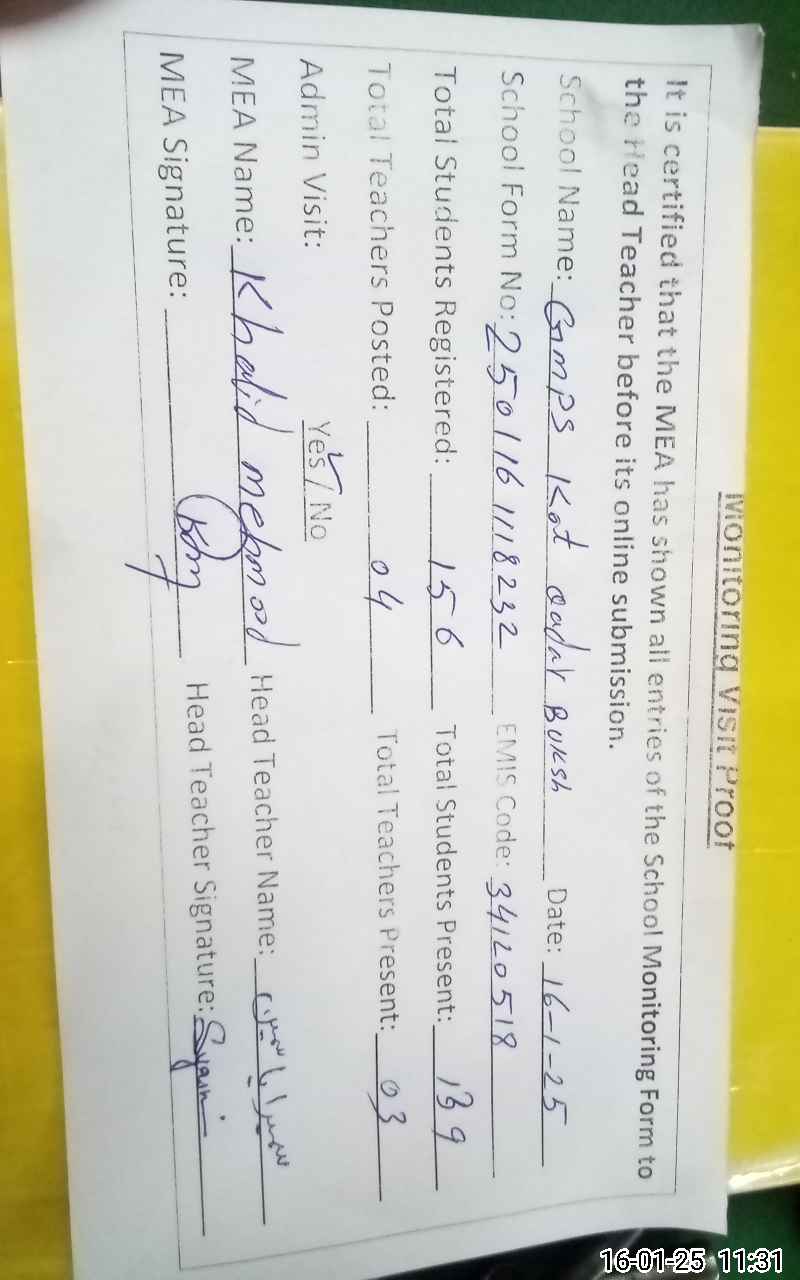 Monitoring Visit Proof
It is certified that the MEA has shown all entries of the School Monitoring Form to
the Head Teacher before its online submission.
School Name: GMPS Kot Qadar Buksh Date: 16-1-25
School Form No: 250116 1118232 EMIS Code: 34120518
Total Students Registered: 156 Total Students Present: 139
Total Teachers Posted: 04 Total Teachers Present: 03
Admin Visit: Yes / No
MEA Name: Khalid mehmood Head Teacher Name:
MEA Signature: Head Teacher Signature:
16-01-25 11:31